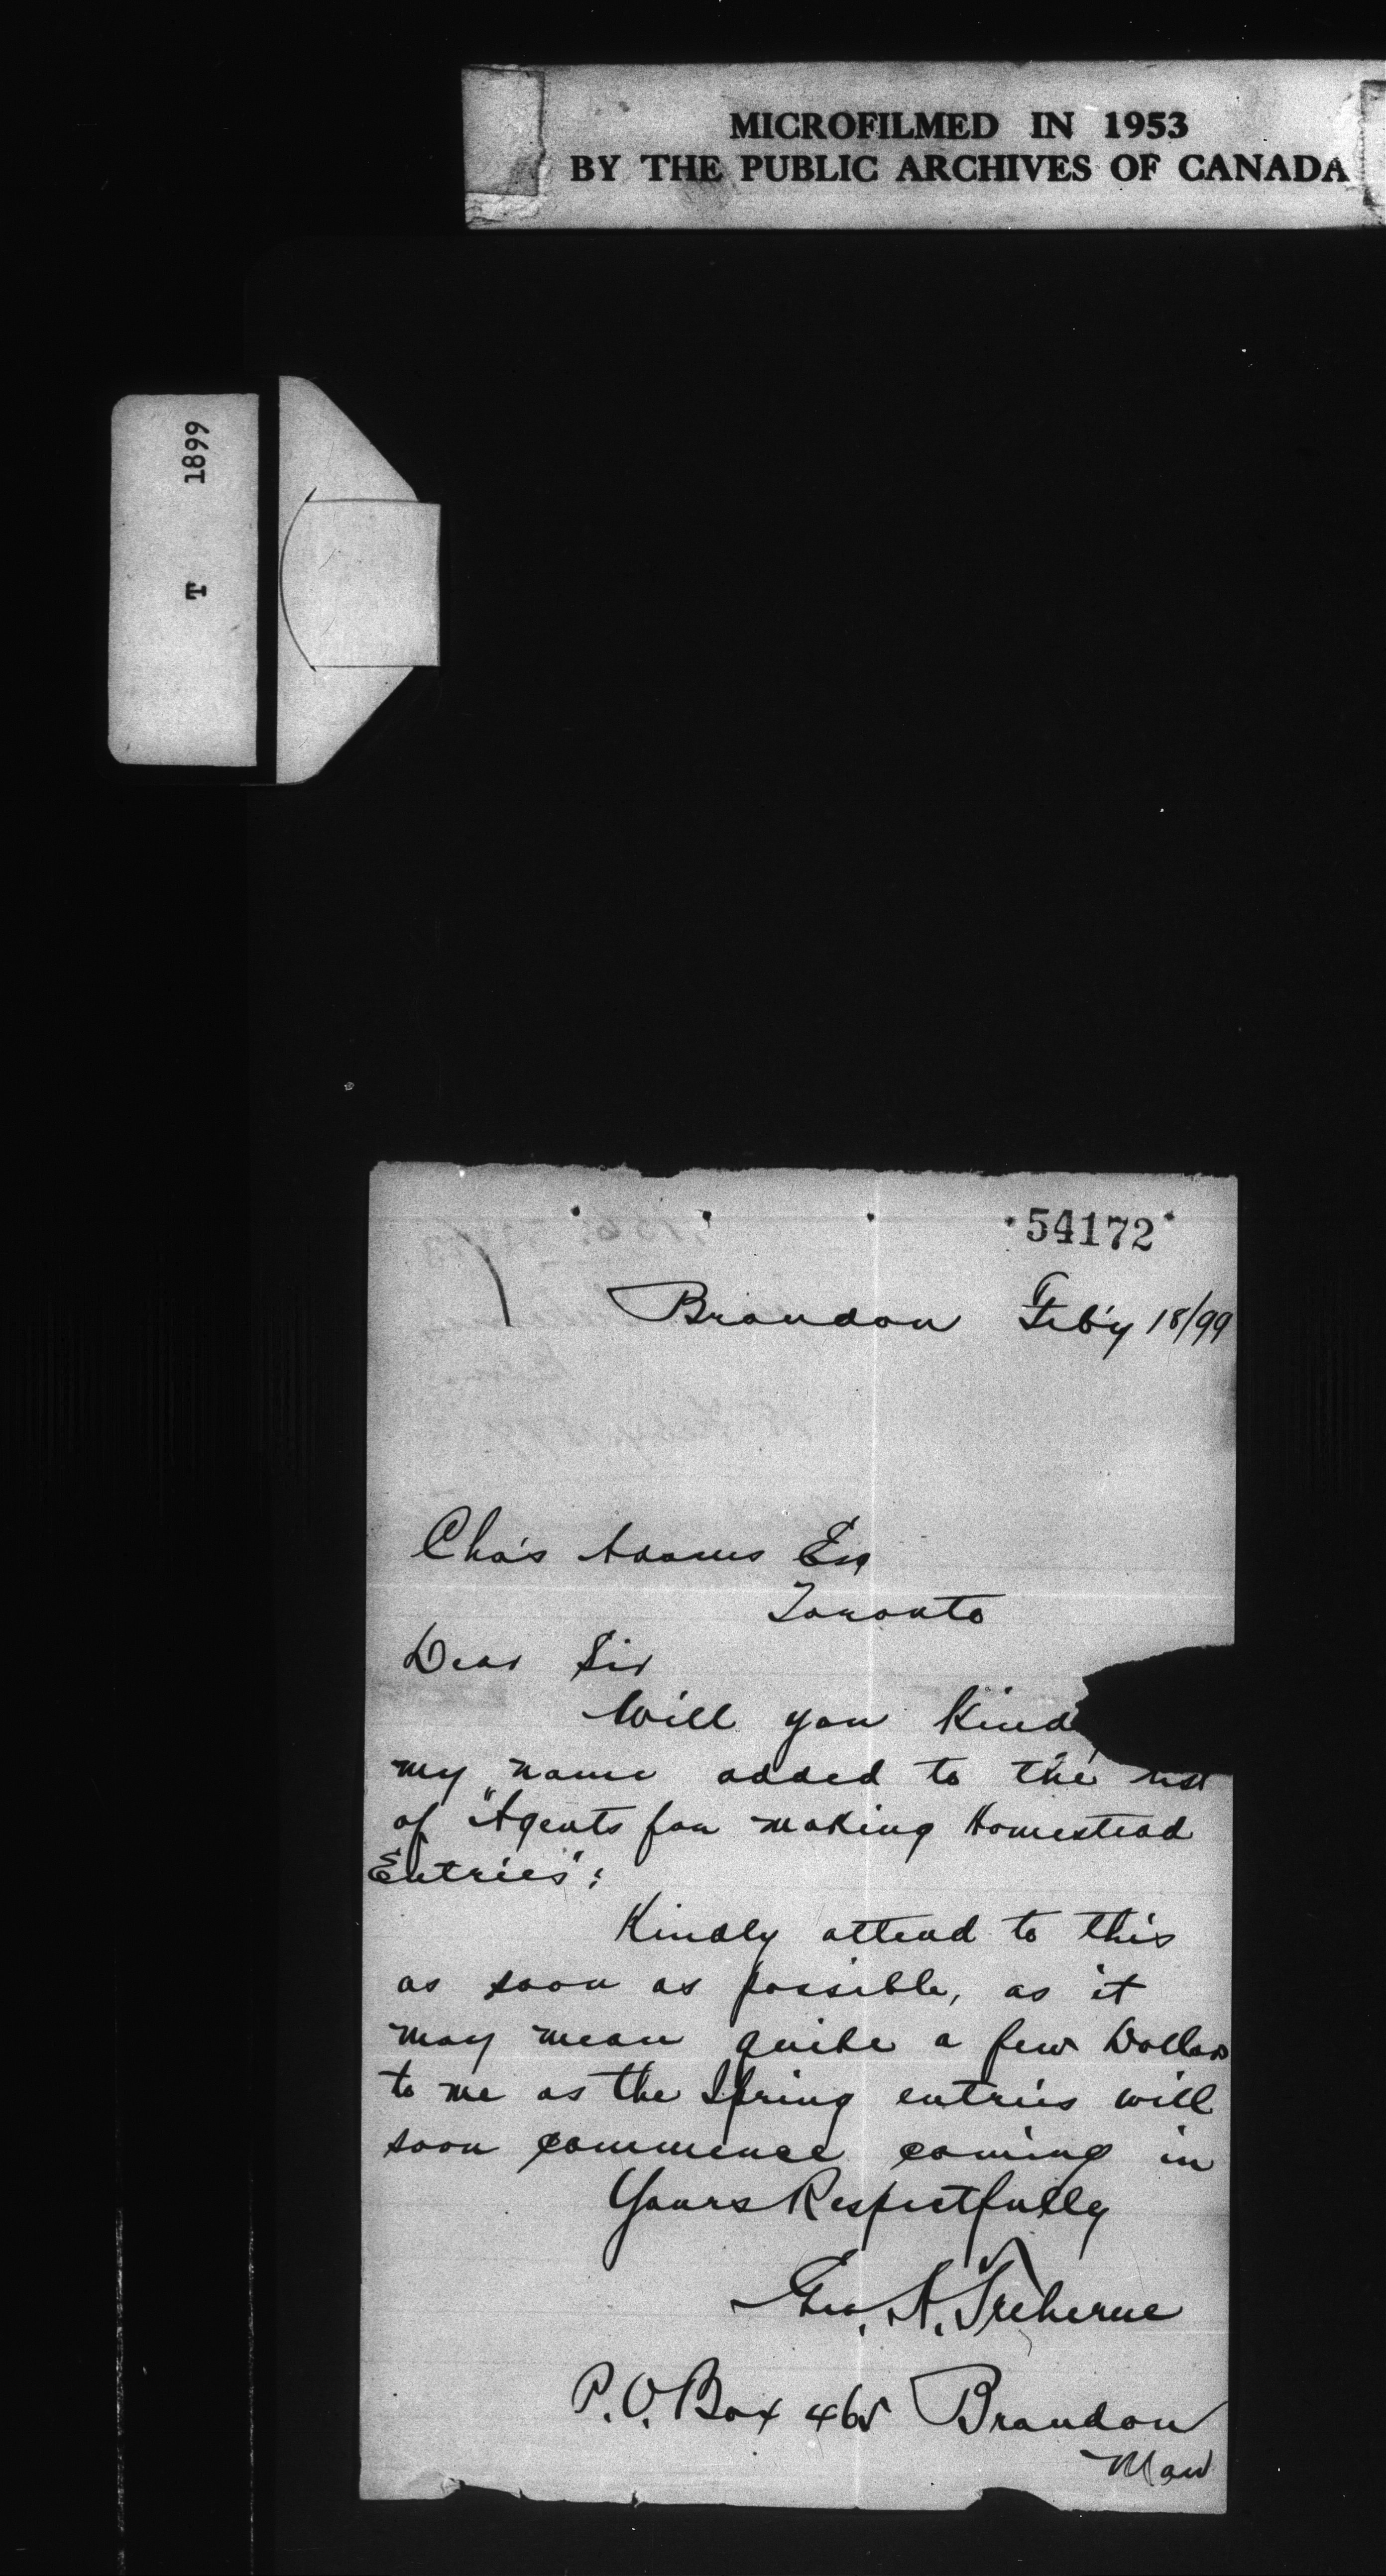 MICROFILMED IN 1953
BY THE PUBLIC ARCHIVES OF CANADA
T 1899
54172
Brandon Feb'y 18/99
Cha's Adams Esq
Toronto
Dear Sir
Will you Kind
my name added to the list
of "Agents for making Homestead
Entries":
Kindly attend to this
as soon as possible, as it
may mean quite a few Dollars
to me as the Spring entries will
soon commence coming in
Yours Respectfully
Geo. A. Treherne
P.O. Box 465 Brandon
Man